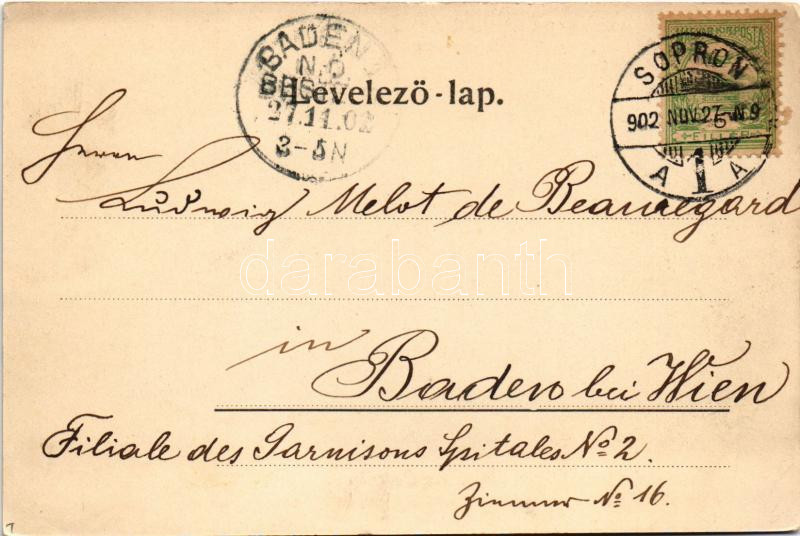 MAGYAR KIR. POSTA
FILLÉR
SOPRON
902 NOV. 27 N 9
A 1 A
BADEN
N.Ö.
27.11.02
3-5N
Levelező-lap.
Herrn
Ludwig Melot de Beauregard
darabanth
in
Baden bei Wien
Filiale des Garnisons Spitales No 2.
Zimmer No 16.